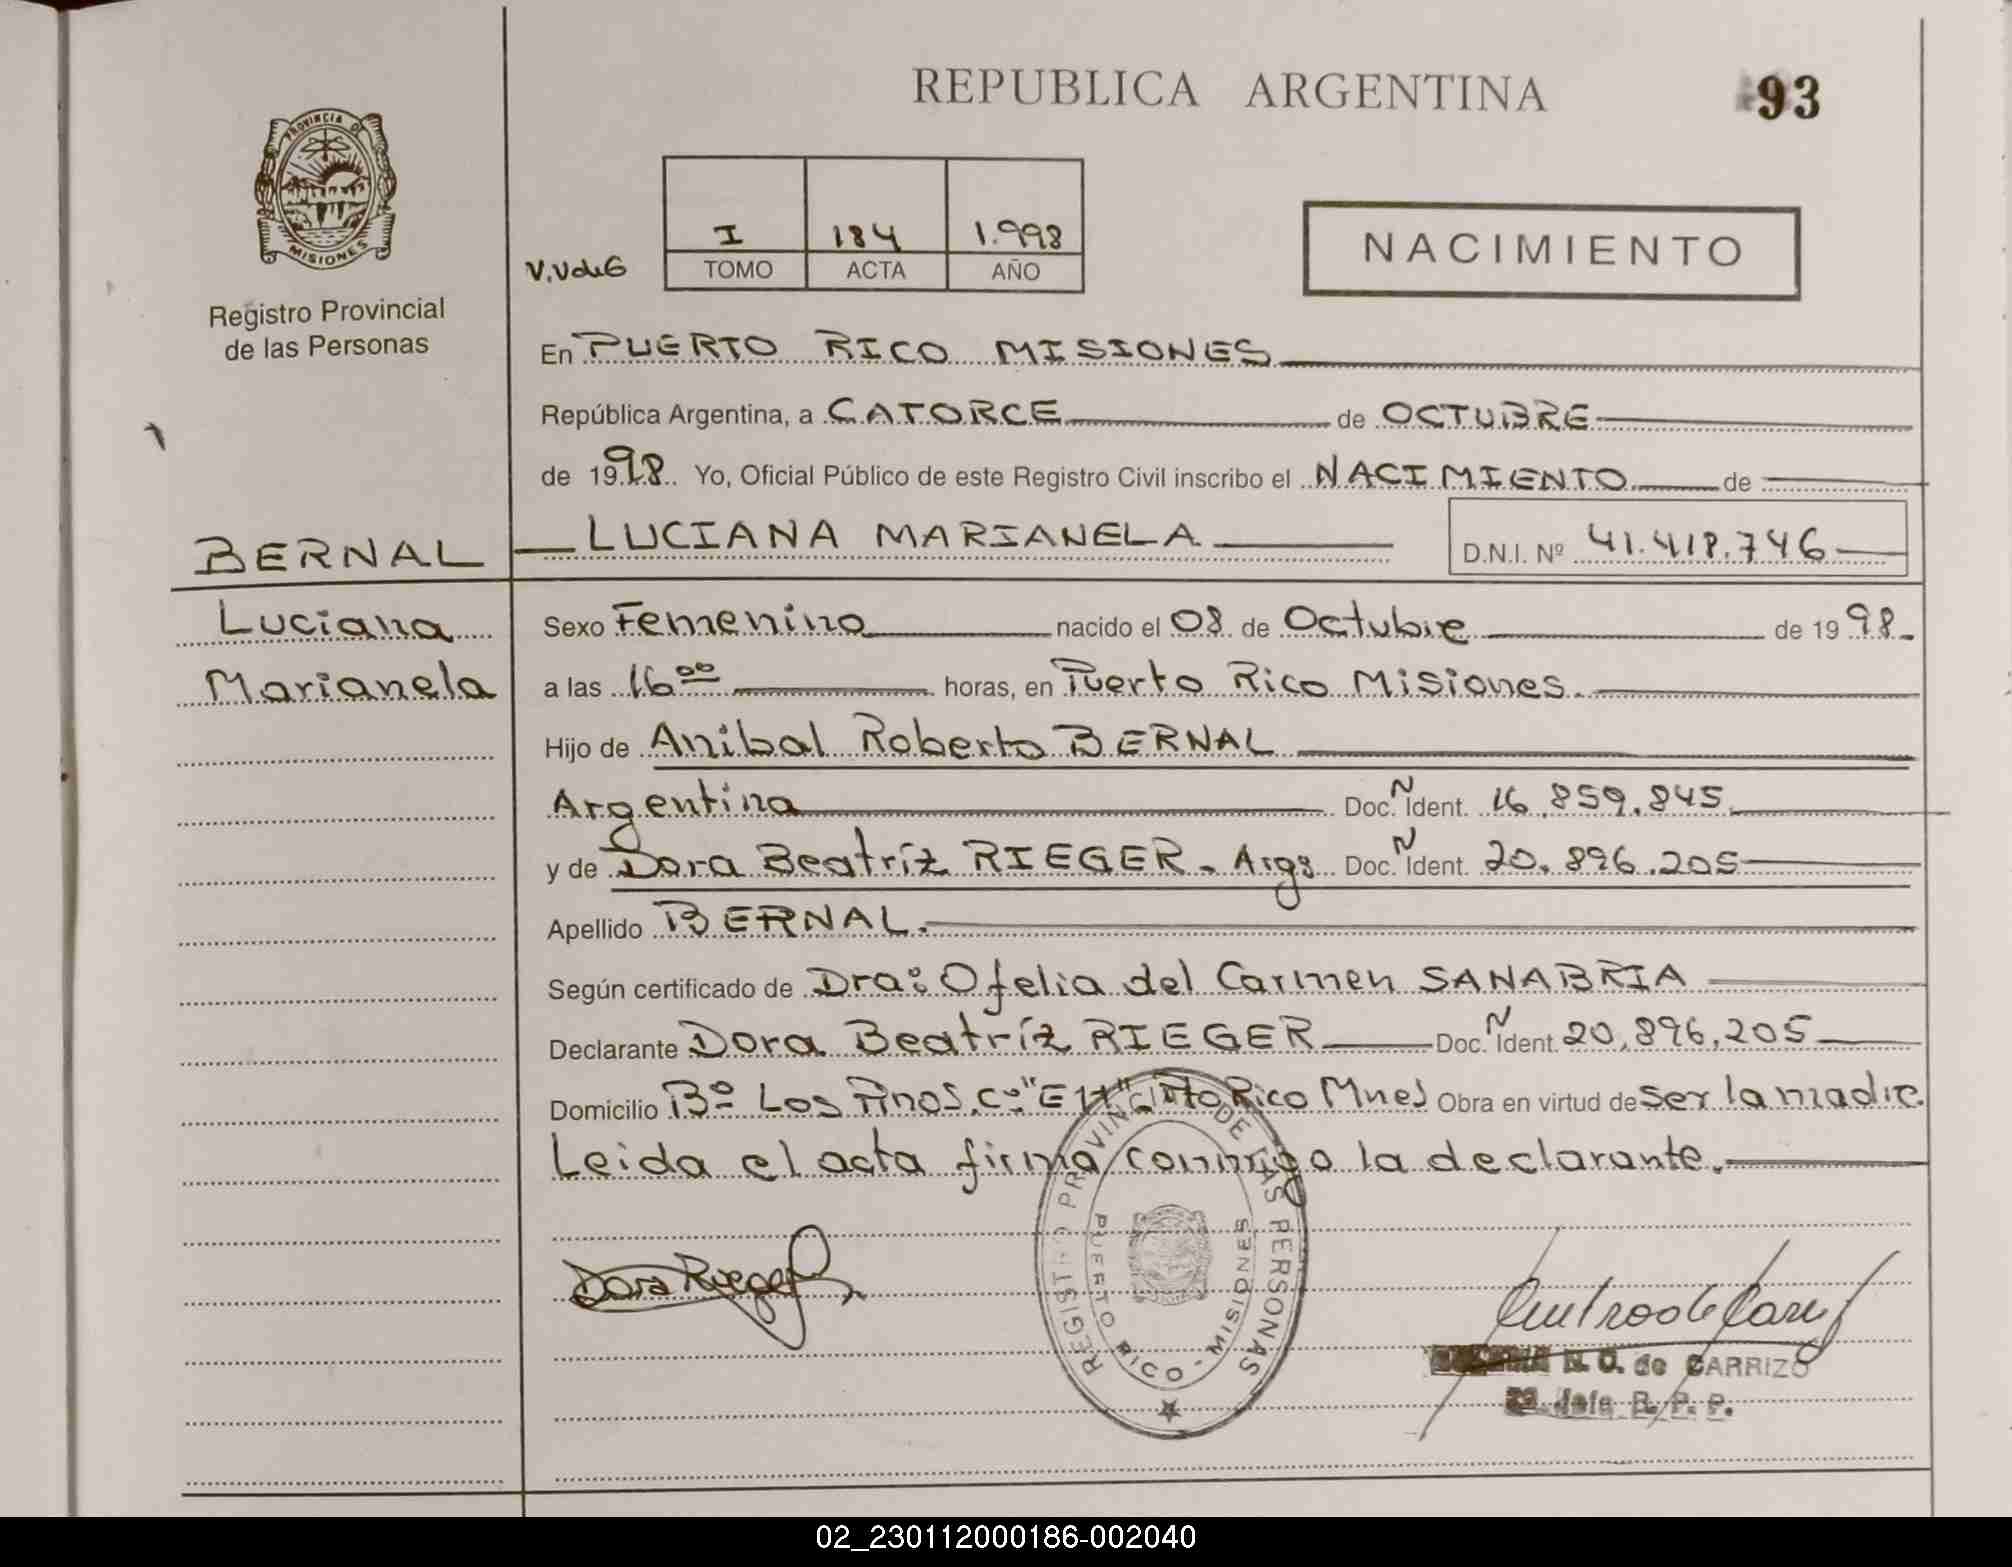 REPUBLICA ARGENTINA
93
PROVINCIA DE
MISIONES
Registro Provincial
de las Personas
V.VdeG
I 184 1.998
TOMO ACTA AÑO
NACIMIENTO
En PUERTO RICO MISIONES
República Argentina, a CATORCE de OCTUBRE
de 1998. Yo, Oficial Público de este Registro Civil inscribo el NACIMIENTO de
BERNAL
LUCIANA MARIANELA
D.N.I. Nº 41.418.746
Luciana
Marianela
Sexo Femenino nacido el 08 de Octubre de 1998
a las 16⁰⁰ horas, en Puerto Rico Misiones.
Hijo de Anibal Roberto BERNAL
Argentina Doc. N Ident. 16.859.845
y de Dora Beatríz RIEGER - Args Doc. N Ident. 20.896.205
Apellido BERNAL.
Según certificado de Dra: Ofelia del Carmen SANABRIA
Declarante Dora Beatríz RIEGER Doc. N Ident. 20.896.205
Domicilio Bº Los Pinos, Pto Rico Mnes Obra en virtud de ser la madre.
Leida el acta firma conmigo la declarante.
Dora Rieger
REGISTRO PROVINCIAL DE LAS PERSONAS
PUERTO RICO - MISIONES
N. O. de CARRIZO
Jefe R. P. P.
02_230112000186-002040